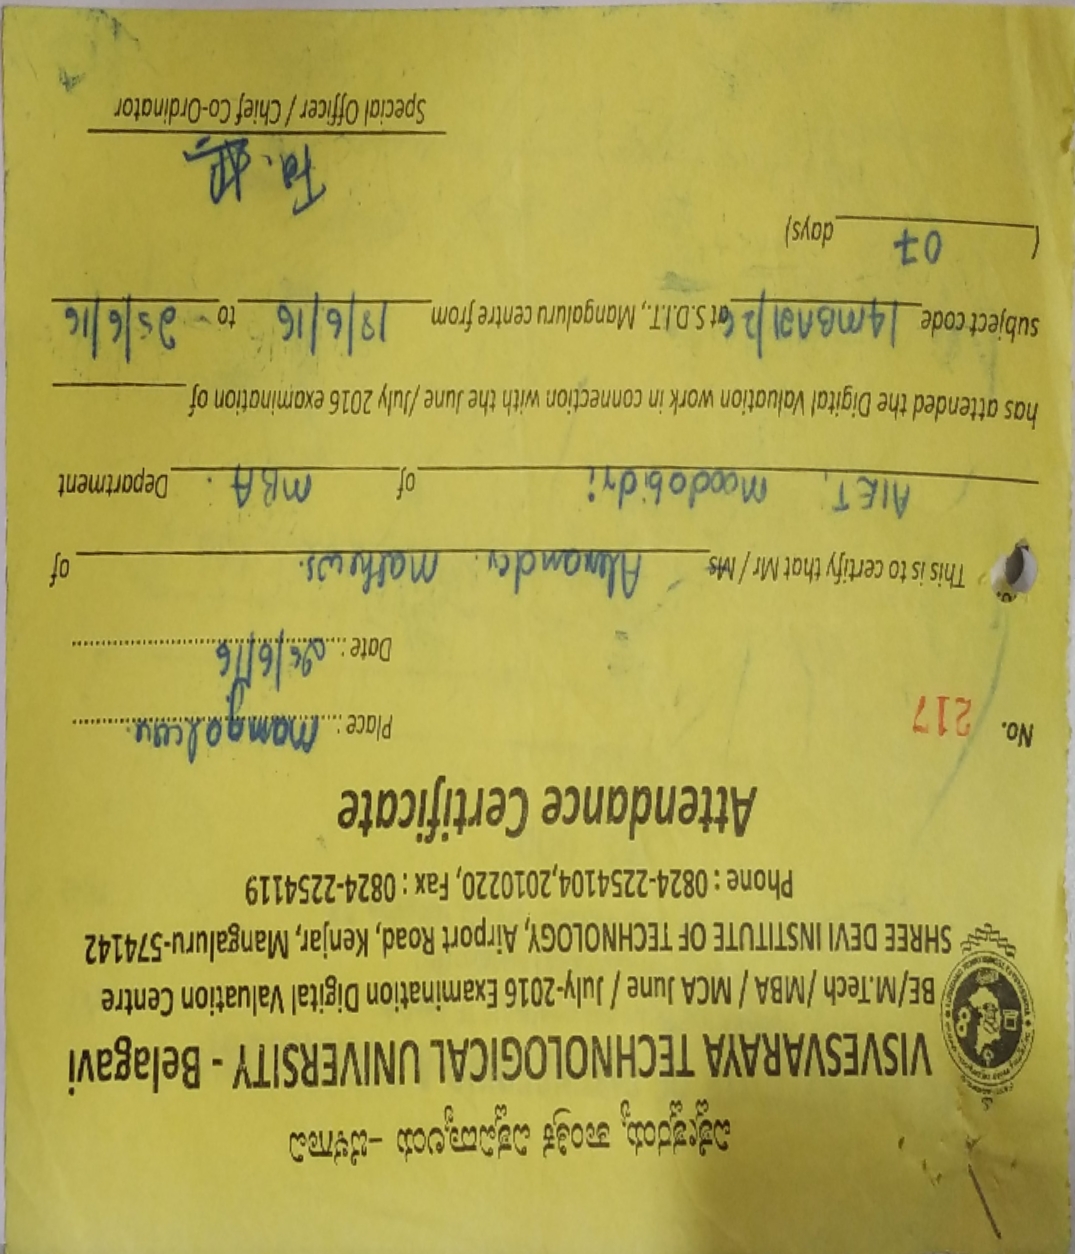 ವಿಶ್ವೇಶ್ವರಯ್ಯ ತಾಂತ್ರಿಕ ವಿಶ್ವವಿದ್ಯಾಲಯ - ಬೆಳಗಾವಿ
VISVESVARAYA TECHNOLOGICAL UNIVERSITY - Belagavi
BE/M.Tech /MBA / MCA June / July-2016 Examination Digital Valuation Centre
SHREE DEVI INSTITUTE OF TECHNOLOGY, Airport Road, Kenjar, Mangaluru-574142
Phone : 0824-2254104,2010220, Fax : 0824-2254119
Attendance Certificate
No. 217 Place : Mangaluru
Date : 25/6/16
This is to certify that Mr / Ms Alexander Mathews. of
AIET, Moodobidri of MBA. Department
has attended the Digital Valuation work in connection with the June /July 2016 examination of
subject code at S.D.I.T., Mangaluru centre from 18/6/16 to 25/6/16
( 07 days)
Special Officer / Chief Co-Ordinator